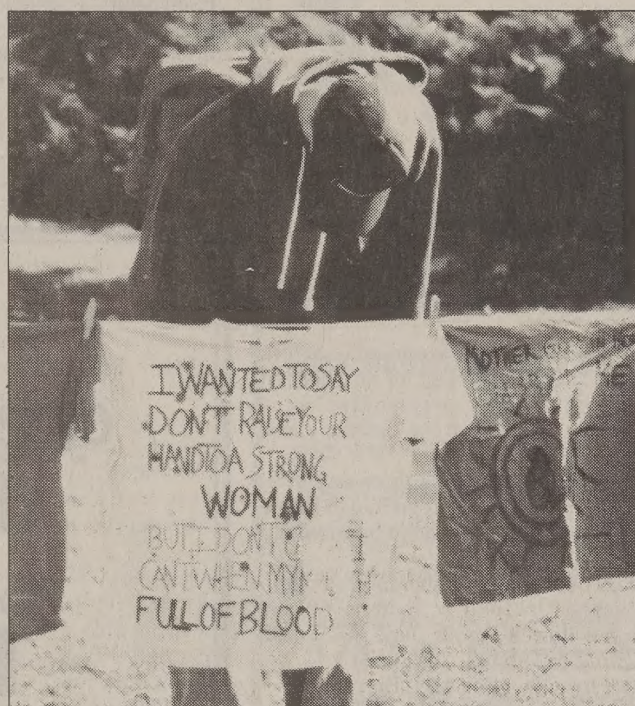 I WANTED TO SAY
DON'T RAISE YOUR
HAND TO A STRONG
WOMAN
BUT I DON'T I
CAN'T WHEN MY
FULL OF BLOOD
MOTHER